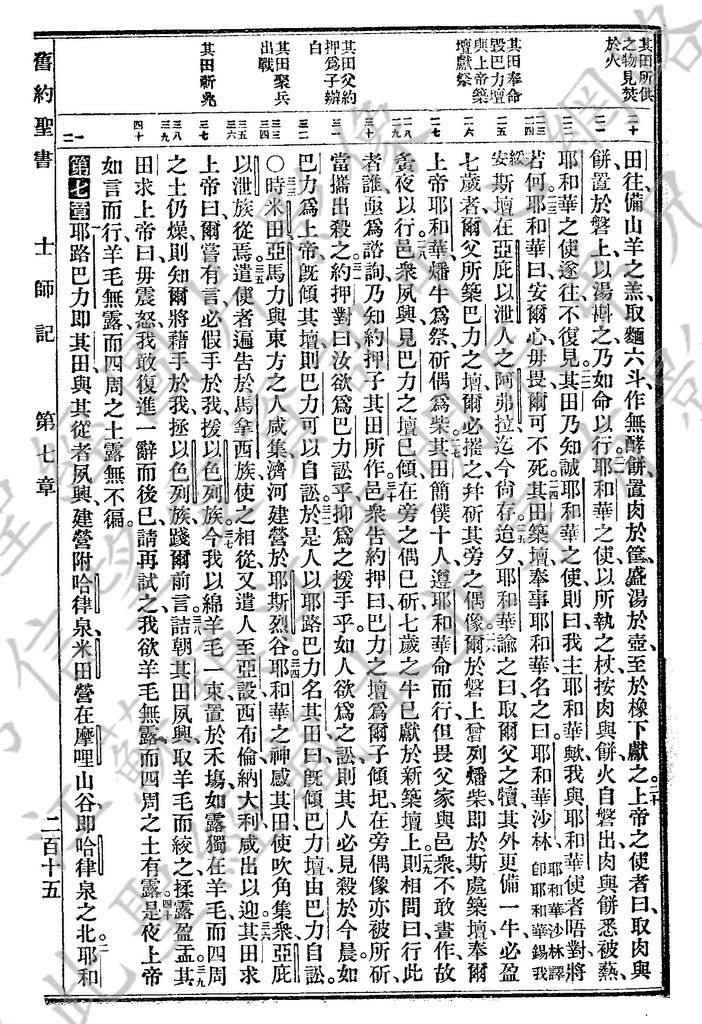 其田所供
之物見焚
於火
其田奉命
毀巴力壇
與上帝築
壇獻祭
其田父約
押爲子辯
白
其田聚兵
出戰
其田祈兆
田往備山羊之羔取麵六斗作無酵餅置肉於筐盛湯於壺至於橡下獻之上帝之使者曰取肉與
餅置於磐上以湯㪺之乃如命以行耶和華之使以所執之杖按肉與餅火自磐出肉與餅悉被爇
耶和華之使遂往不復見其田乃知誠耶和華之使則曰我主耶和華歟我與耶和華使者晤對將
若何耶和華曰安爾心毋畏爾可不死其田築壇奉事耶和華名之曰耶和華沙林耶和華沙林譯卽耶和華錫我
綏安斯壇在亞庇以泄人之阿弗拉迄今尚存造夕耶和華諭之曰取爾父之犢其外更備一牛必盈
七歲者爾父所築巴力之壇爾必摧之幷斫其旁之偶像爾於磐上曾列燔柴卽於斯處築壇奉爾
上帝耶和華燔牛爲祭斫偶爲柴其田簡僕十人遵耶和華命而行但畏父家與邑衆不敢晝作故
夤夜以行邑衆夙興見巴力之壇已傾在旁之偶已斫七歲之牛已獻於新築壇上則相問曰行此
者誰亟爲諮詢乃知約押子其田所作邑衆告約押曰巴力之壇爲爾子傾圮在旁偶像亦被所斫
當攜出殺之約押對曰汝欲爲巴力訟乎抑爲之援手乎如人欲爲之訟則其人必見殺於今晨如
巴力爲上帝旣傾其壇則巴力可以自訟於是人以耶路巴力名其田曰旣傾巴力壇由巴力自訟
〇時米田亞馬力與東方之人咸集濟河建營於耶斯烈谷耶和華之神感其田使吹角集衆亞庇
以泄族從焉遣使者遍告於馬拿西族使之相從又遣人至亞設西布倫納大利咸出以迎其田求
上帝曰爾嘗有言必假手於我援以色列族今我以綿羊毛一束置於禾塲如露獨在羊毛而四周
之土仍燥則知爾將藉手於我拯以色列族踐爾前言詰朝其田夙興取羊毛而絞之揉露盈盂其
田求上帝曰毋震怒我敢復進一辭而後已請再試之我欲羊毛無露而四周之土有露是夜上帝
如言而行羊毛無露而四周之土露無不徧
第七章耶路巴力卽其田與其從者夙興建營附哈律泉米田營在摩哩山谷卽哈律泉之北耶和
舊約聖書 士師記 第七章 二百十五